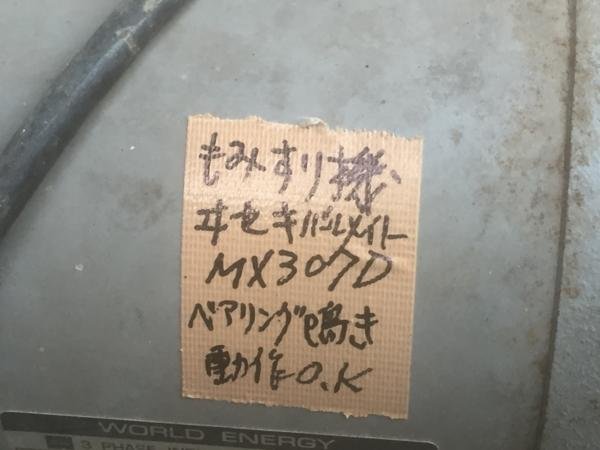 もみすり機
ヰセキパルメイト
MX307D
ベアリング鳴き
動作O.K
WORLD ENERGY
3 PHASE